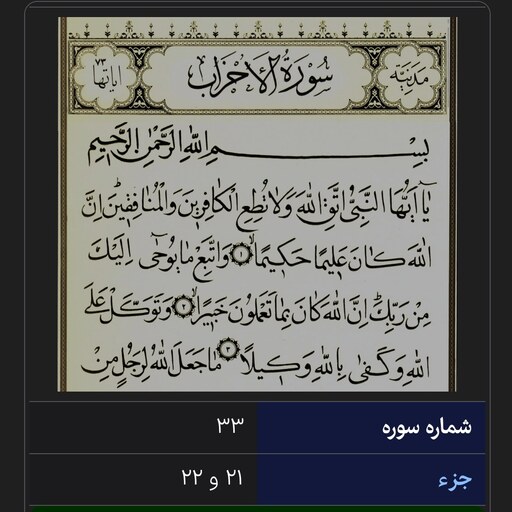 مدنية سورة الأحزاب آياتها ٧٣
بِسْمِ اللهِ الرَّحْمٰنِ الرَّحِيمِ
يَا أَيُّهَا النَّبِيُّ اتَّقِ اللهَ وَلَا تُطِعِ الْكَافِرِينَ وَالْمُنَافِقِينَ إِنَّ
اللهَ كَانَ عَلِيمًا حَكِيمًا ۝١ وَاتَّبِعْ مَا يُوحَىٰ إِلَيْكَ
مِنْ رَبِّكَ إِنَّ اللهَ كَانَ بِمَا تَعْمَلُونَ خَبِيرًا ۝٢ وَتَوَكَّلْ عَلَى
اللهِ وَكَفَىٰ بِاللهِ وَكِيلًا ۝٣ مَا جَعَلَ اللهُ لِرَجُلٍ مِنْ
شماره سوره ۳۳
جزء ۲۱ و ۲۲